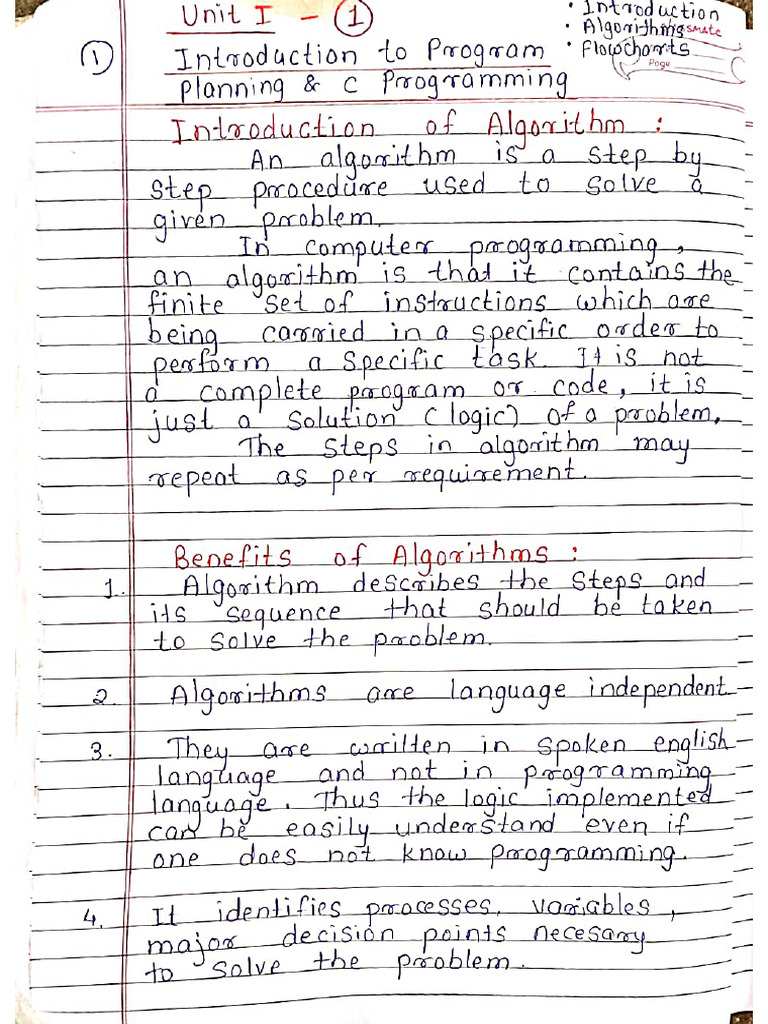 Unit I - ①
• Introduction
• Algorithms
• Flowcharts
Page
① Introduction to Program
Planning & C Programming
Introduction of Algorithm :
An algorithm is a step by
step procedure used to solve a
given problem.
In computer programming,
an algorithm is that it contains the
finite set of instructions which are
being carried in a specific order to
perform a specific task. It is not
a complete program or code, it is
just a solution (logic) of a problem.
The steps in algorithm may
repeat as per requirement.
Benefits of Algorithms :
1. Algorithm describes the steps and
its sequence that should be taken
to solve the problem.
2. Algorithms are language independent
3. They are written in spoken english
language and not in programming
language. Thus the logic implemented
can be easily understand even if
one does not know programming.
4. It identifies processes, variables,
major decision points necesary
to solve the problem.